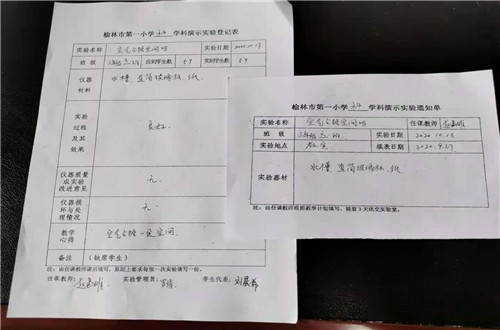 榆林市第一小学科学学科演示实验登记表
实验名称 空气占据空间吗 实验日期 2020.10.13
班 级 应到学生数 59 实到学生数 59
仪器材料 水槽 直筒玻璃杯、纸
实验过程及其效果 良好。
仪器质量或实验改进意见 无
仪器损坏与处理情况 无。
教学心得 空气占据一定空间。
备注 (缺席学生)
注：由任课教师课后填写，原则上要求每做一次实验填写一份。
任课教师： 实验管理员： 学生代表：
榆林市第一小学科学学科演示实验通知单
实验名称 空气占据空间吗 任课教师
班 级 实验日期 2020.10.13
实验地点 教室 填表日期 2020.9.27
实验器材 水槽 直筒玻璃杯、纸
注：由任课教师根据教学计划填写，提前3天送交实验室。